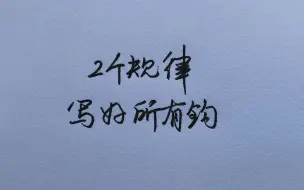 2个规律
写好所有钩